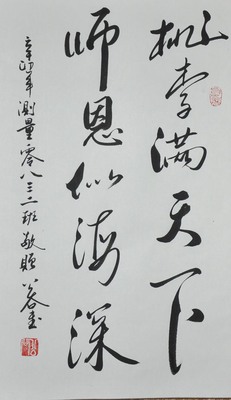 桃李满天下
师恩似海深
辛卯年测量零八三二班敬赠